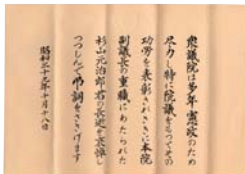 衆議院は多年憲政のため
尽力し特に院議をもつてその
功労を表彰されさきに本院
副議長の重職にあたられた
杉山元治郎君の長逝を哀悼し
つつしんで弔詞をささげます
昭和三十九年十月十八日